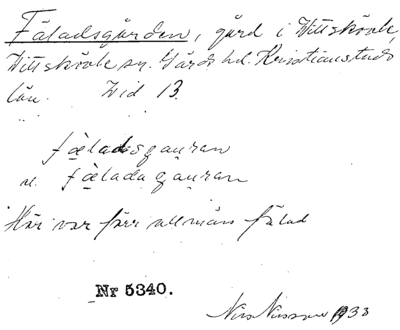 Fäladsgården, gård i Vittskövle,
Vittskövle sn. Gärds hd. Kristianstads
län. Vid 13.
fäladsgauran
el. fäladagauran
Här var förr allmän fälad
Nr 5340.
Nils Nilsson 1933